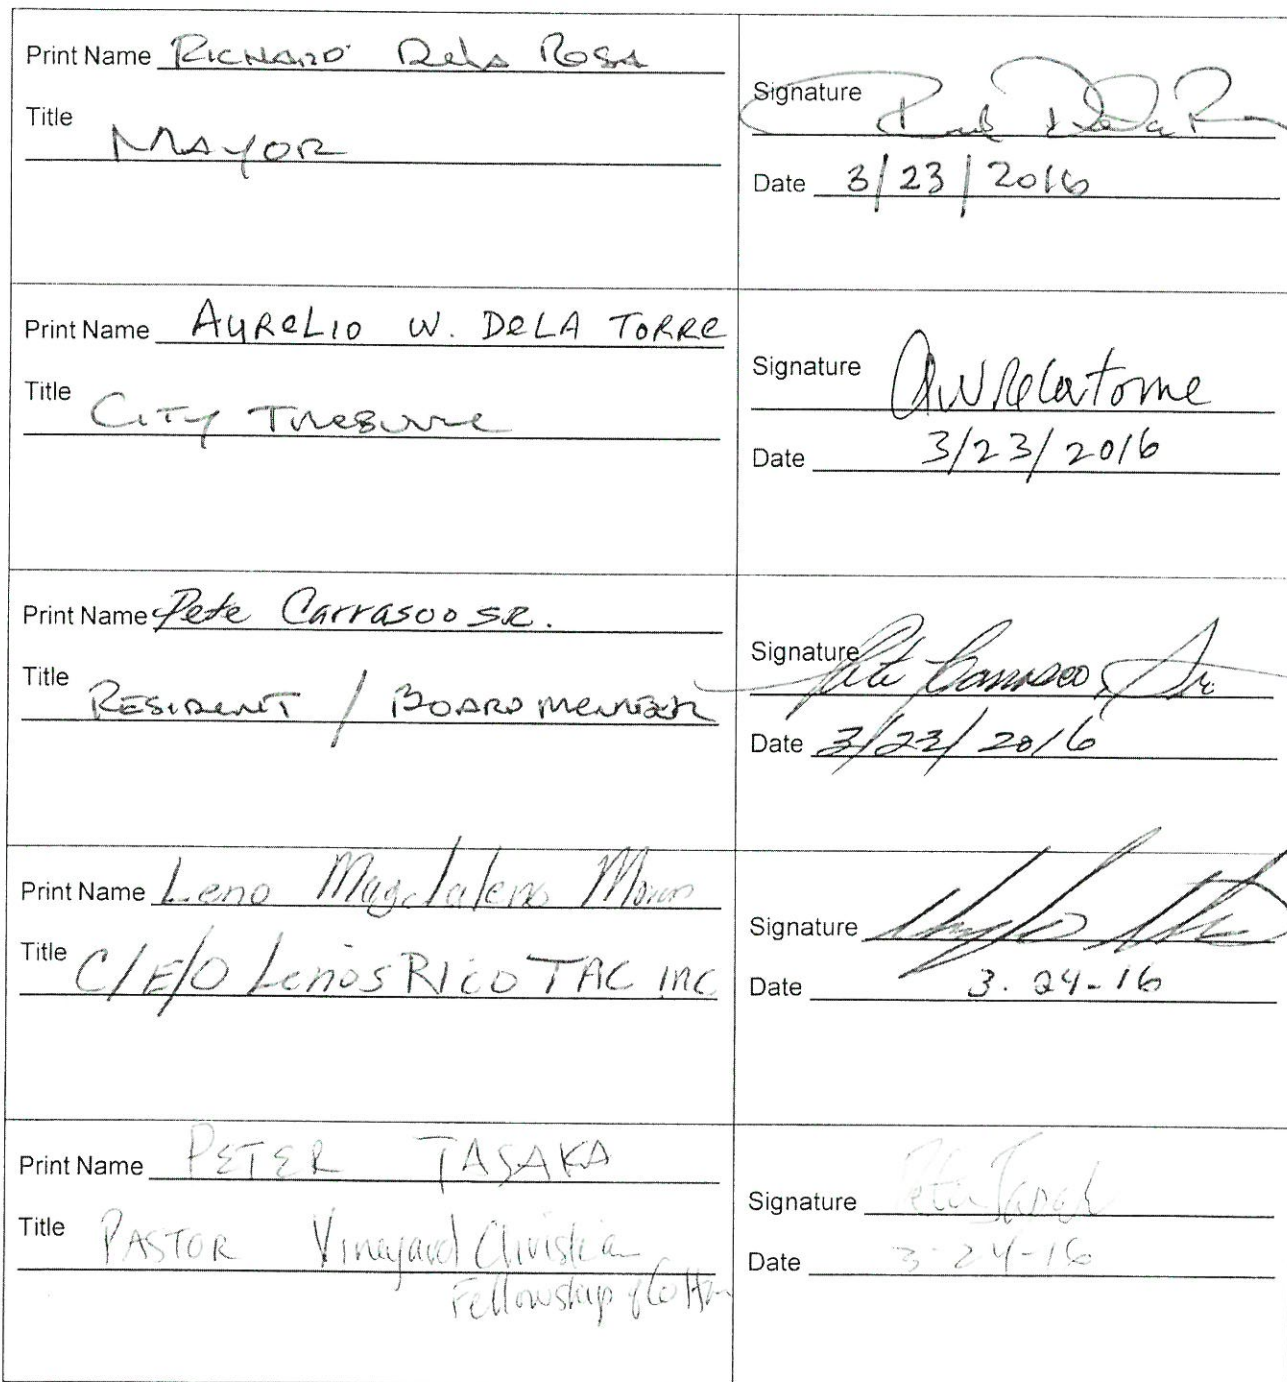 Print Name RICHARD DelA ROSA
Title
MAYOR
Signature
Date 3/23/2016
Print Name AURELIO W. DELA TORRE
Title
CITY
Signature AW Delatorre
Date 3/23/2016
Print Name Pete Carrasco SR.
Title
RESIDENT / BOARD MEMBER
Signature Pete Carrasco, Sr.
Date 3/23/2016
Print Name Leno Magdaleno
Title C/E/O Leños Rico TAC INC
Signature
Date 3.24-16
Print Name PETER TASAKA
Title PASTOR Vineyard Christian
Fellowship of Colton
Signature
Date 3-24-16